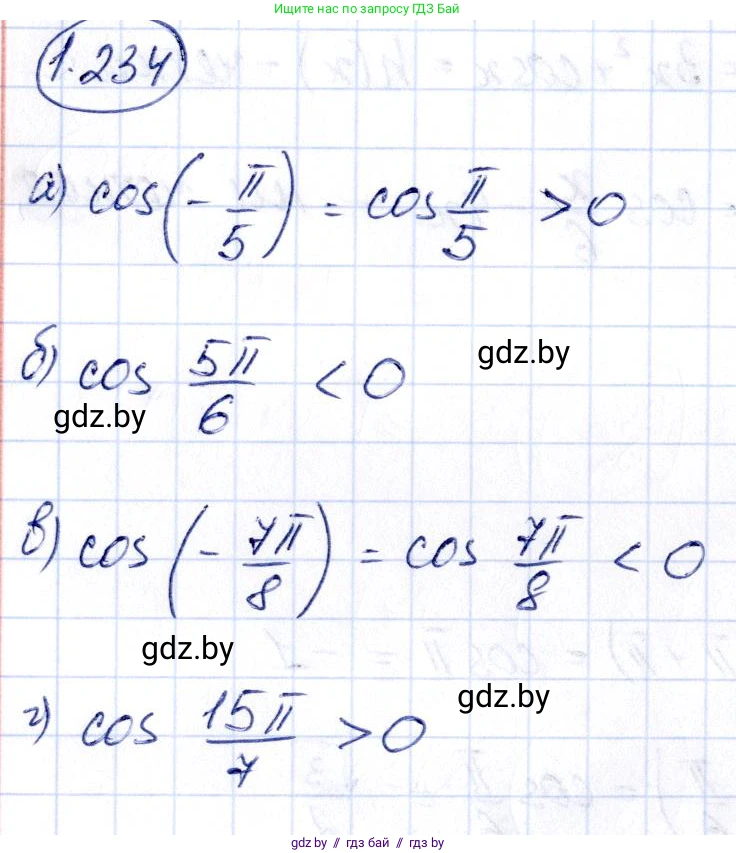 Ищите нас по запросу ГДЗ Бай
1.234
а) cos(-π/5) = cos π/5 > 0
б) cos 5π/6 < 0
gdz.by
gdz.by
в) cos(-7π/8) = cos 7π/8 < 0
gdz.by
gdz.by
г) cos 15π/7 > 0
gdz.by // гдз бай // гдз by